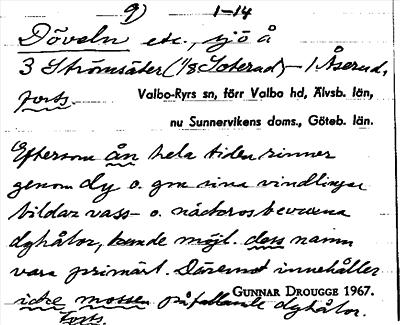 9) 1-14
Döveln etc., sjö å
3 Strömsäter (1/8 Soterud) - 1 Åserud,
forts. Valbo-Ryrs sn, förr Valbo hd, Älvsb. län,
nu Sunnervikens doms., Göteb. län.
Eftersom ån hela tiden rinner
genom dy o. gm sina vindlingar
bildar vass- o. näckrosbevuxna
dyhålor, kunde möjl. dess namn
vara primärt. Däremot innehåller
GUNNAR DROUGGE 1967.
icke mossen påfallande dyhålor.
forts.